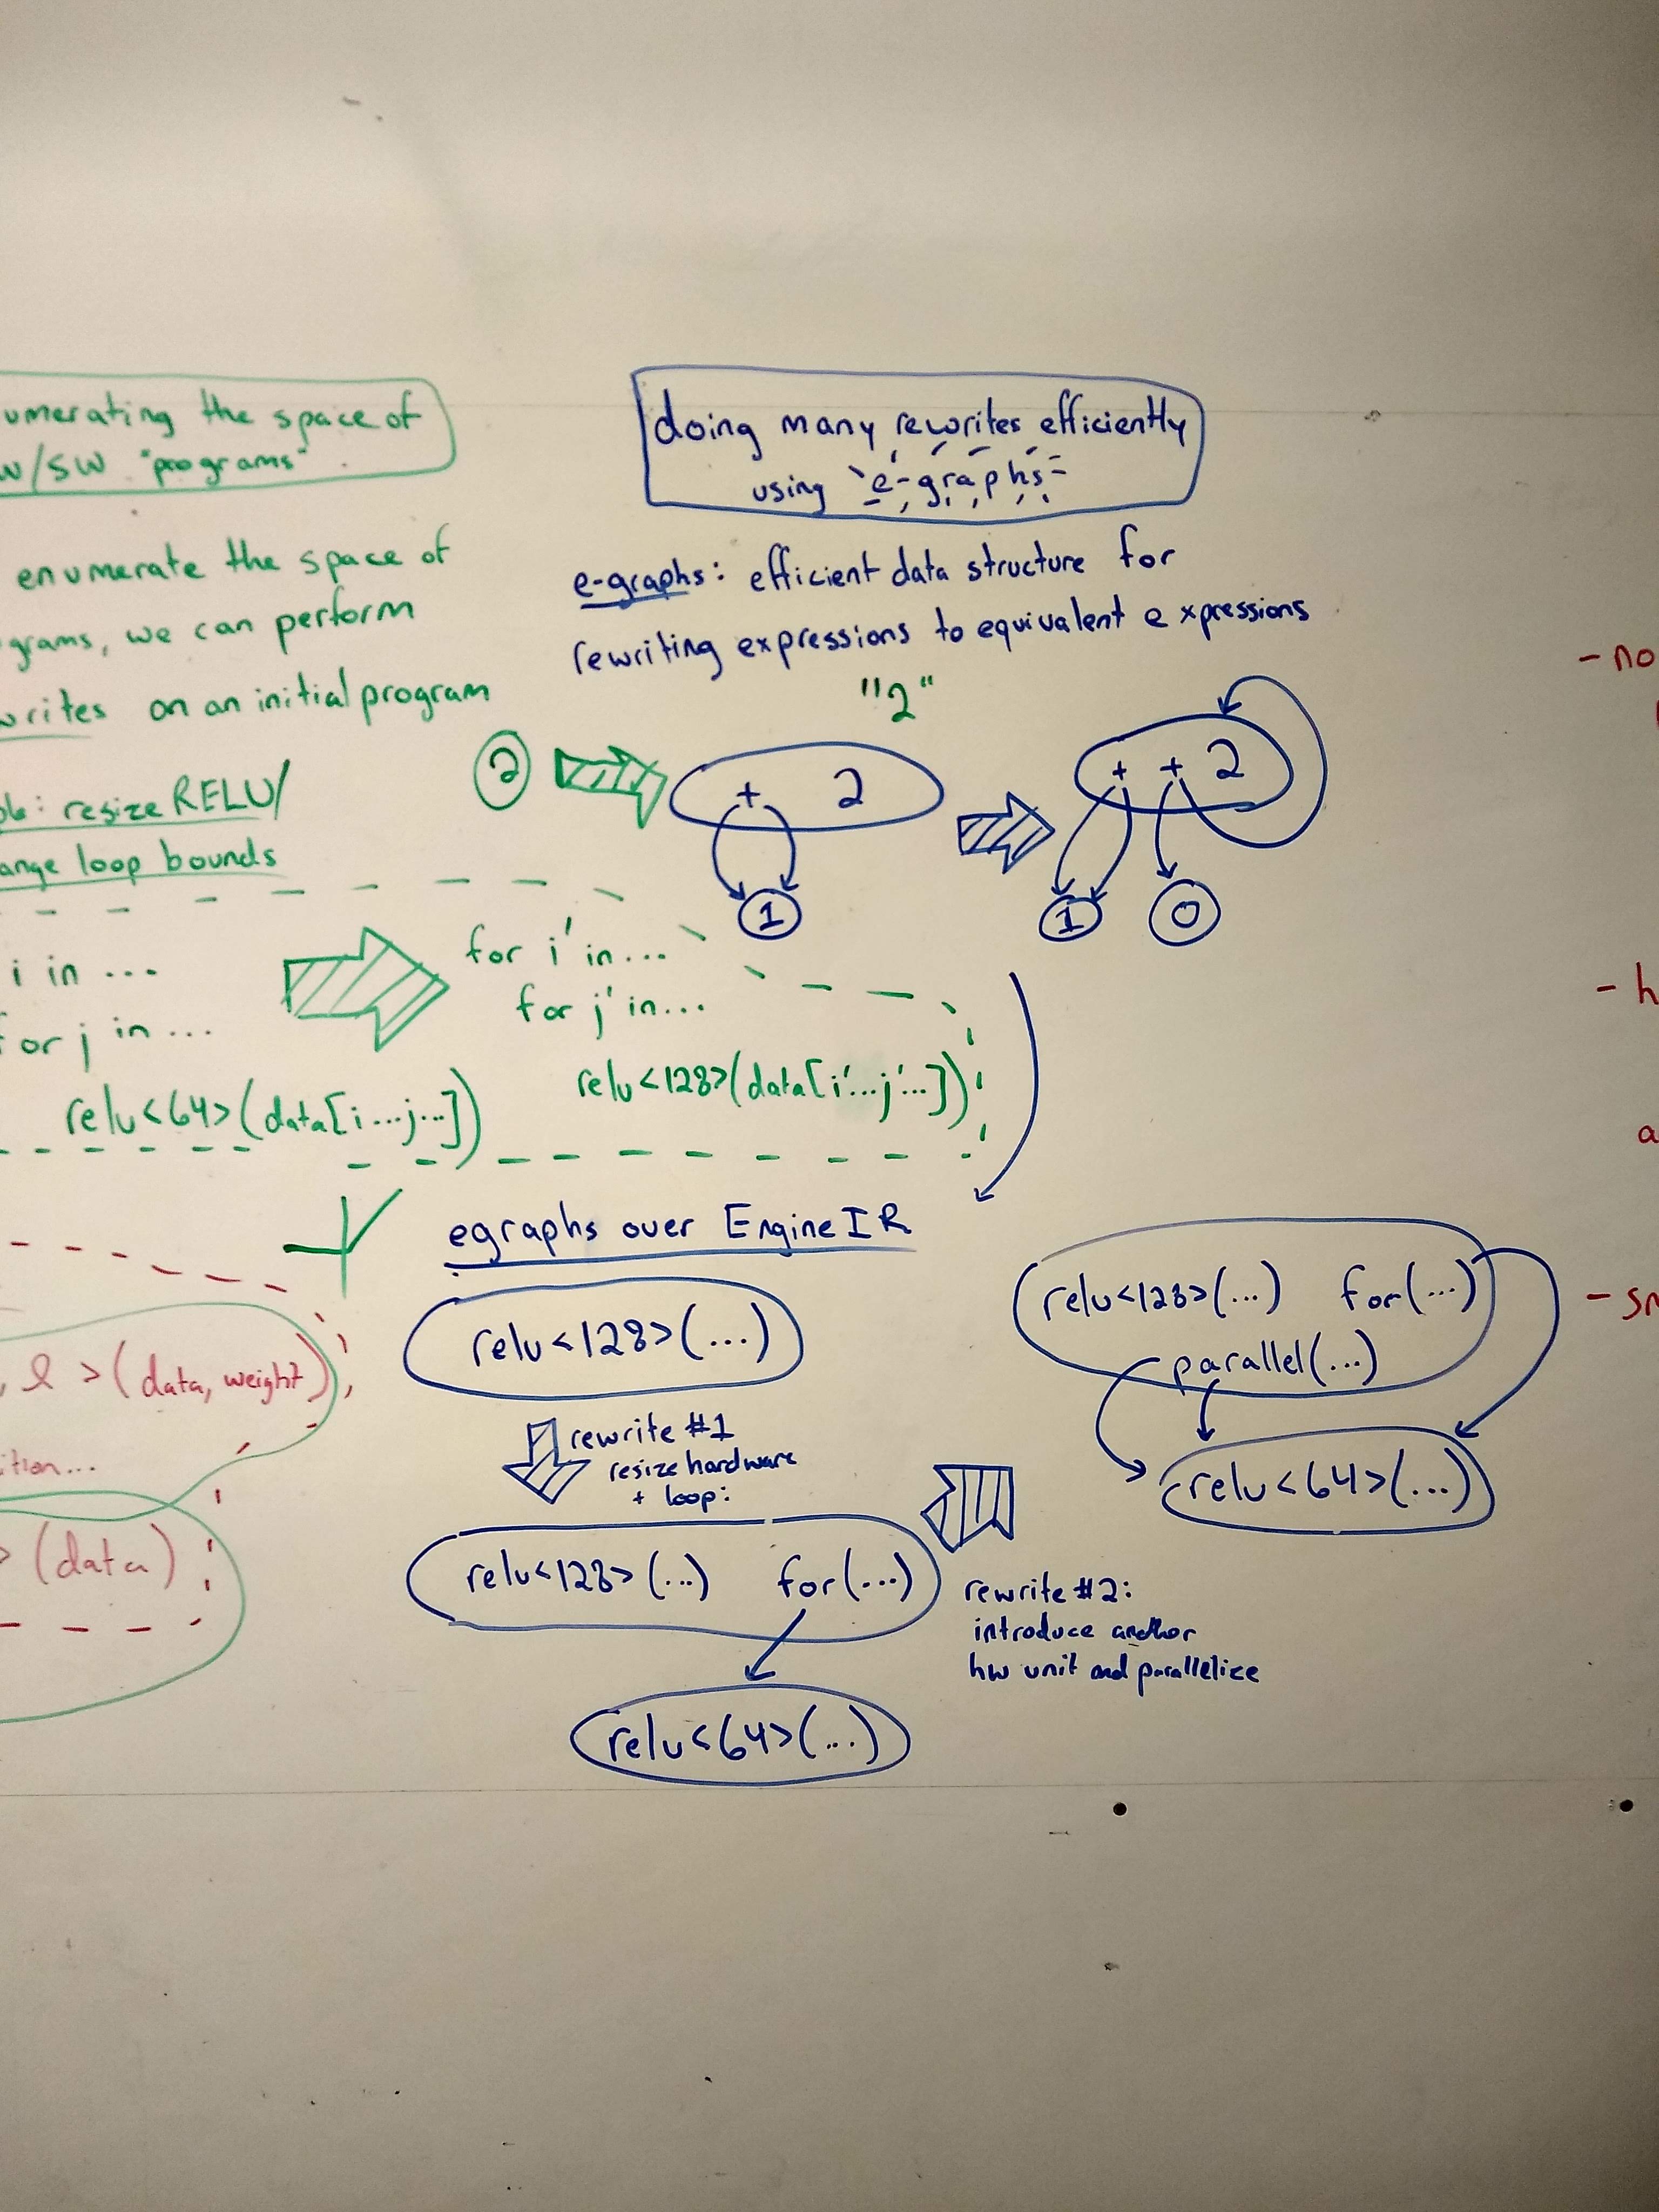 umerating the space of
w/sw "programs"
enumerate the space of
grams, we can perform
writes on an initial program
ple: resize RELU/
ange loop bounds
i in ...
for j in ...
relu<64>(data[i...j...])
for i' in...
for j' in...
relu<128>(data[i'...j'...])
, l >(data, weight),
ition...
> (data)
doing many rewrites efficiently
using `e-graphs
e-graphs: efficient data structure for
rewriting expressions to equivalent expressions
"2"
2
+ 2
1
+ + 2
1 0
egraphs over EngineIR
relu<128>(...)
rewrite #1
resize hardware
+ loop:
relu<128>(...) for(...)
relu<64>(...)
rewrite #2:
introduce another
hw unit and parallelize
relu<128>(...) for(...)
parallel(...)
relu<64>(...)
- no
- h
a
- sm